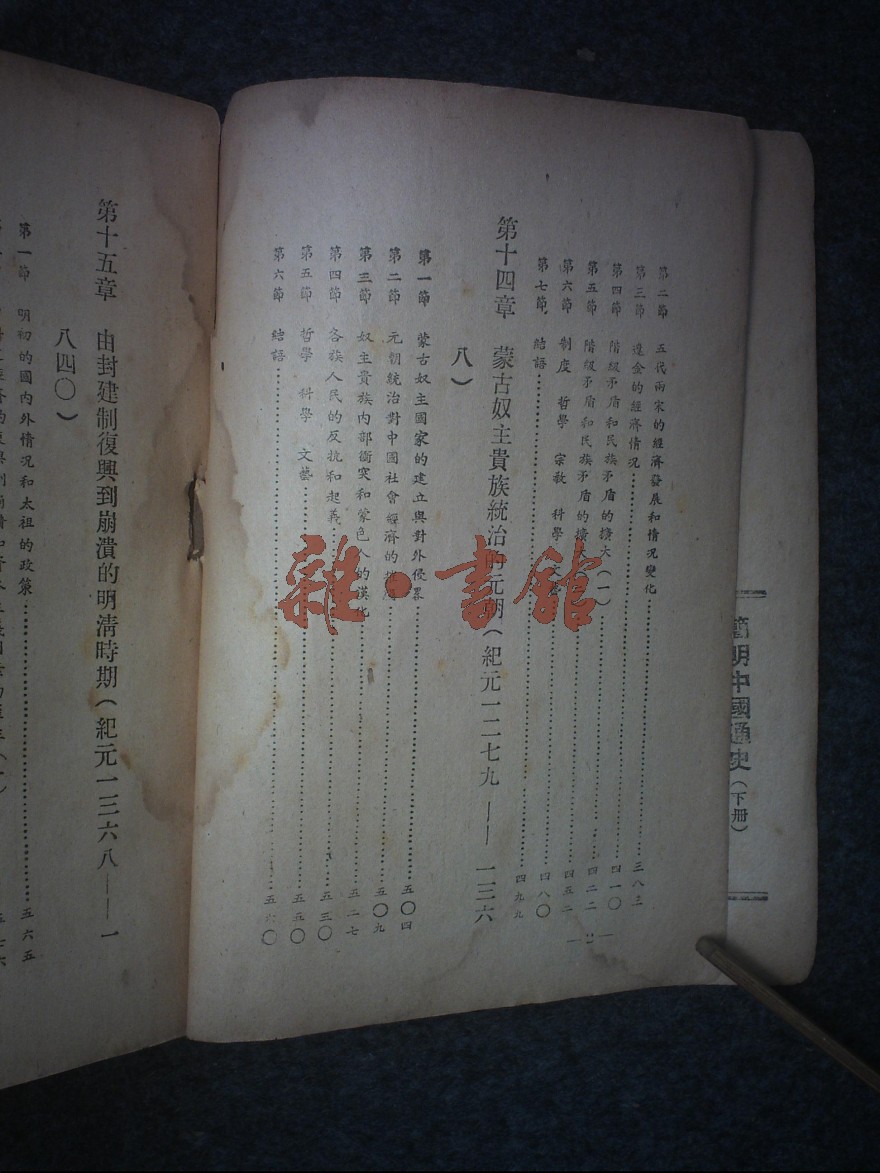 簡明中國通史(下册)
第二節 五代兩宋的經濟發展和情况變化……三八三
第三節 遼金的經濟情况……四一〇
第四節 階級矛盾和民族矛盾的擴大(一)……四二二
第五節 階級矛盾和民族矛盾的擴大……四五二
第六節 制度 哲學 宗敎 科學 文藝……四八〇
第七節 結語……四九九
第十四章 蒙古奴主貴族統治的元朝(紀元一二七九——一三六
八)
第一節 蒙古奴主國家的建立與對外侵畧……五〇四
第二節 元朝統治對中國社會經濟的……五〇九
第三節 奴主貴族內部衝突和蒙色人的漢化……五二七
第四節 各族人民的反抗和起義……五三〇
第五節 哲學 科學 文藝……五五〇
第六節 結語……五六〇
— 2 —
第十五章 由封建制復興到崩潰的明淸時期(紀元一三六八——一
八四〇)
第一節 明初的國內外情况和太祖的政策……五六五
雜·書館